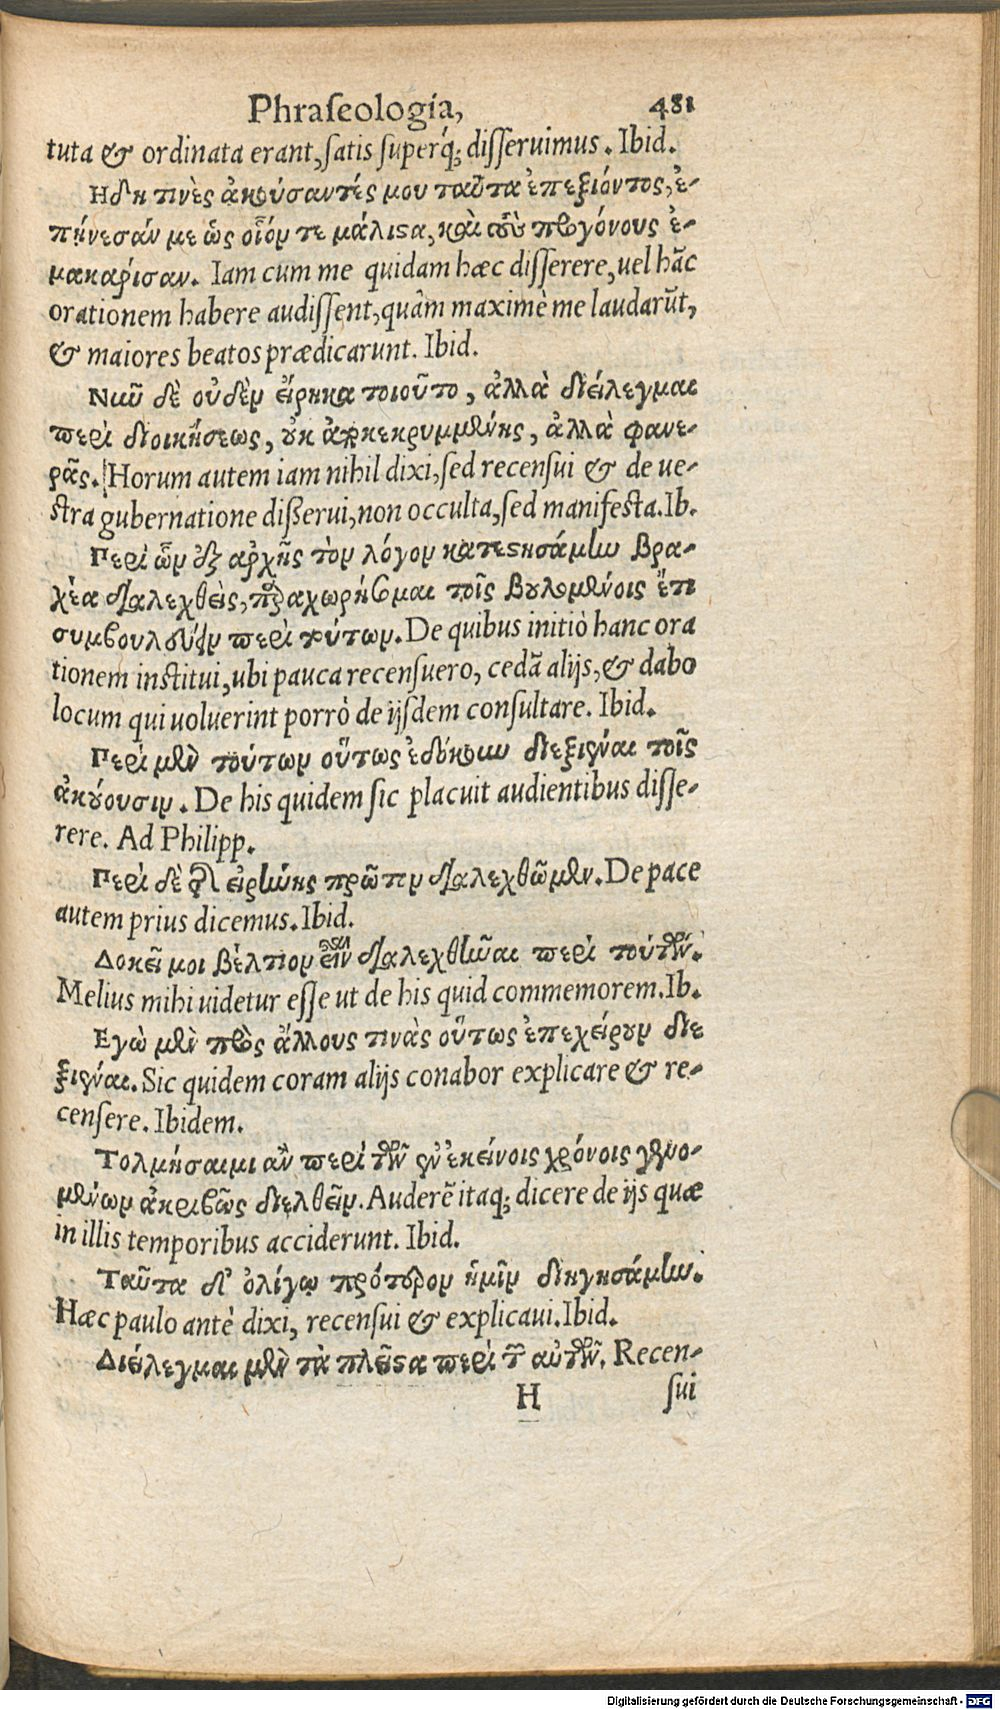 Phraseologia, 481
tuta & ordinata erant, satis superq́; disseruimus. Ibid.
Ηδη τινὲς ἀκούσαντές μου ταῦτα ἐπεξιόντος, ἐ-
πῄνεσάν με ὡς οἷόν τε μάλιϛα, καὶ τοὺς προγόνους ἐ-
μακάρισαν. Iam cum me quidam hæc disserere, uel hãc
orationem habere audissent, quàm maximè me laudarũt,
& maiores beatos prædicarunt. Ibid.
Νιῦ δὲ οὐδὲν εἴρηκα τοιοῦτο, ἀλλὰ διείλεγμαι
περὶ διοικήσεως, οὐκ ἀποκεκρυμμένης, ἀλλὰ φανε-
ρᾶς. Horum autem iam nihil dixi, sed recensui & de ue-
stra gubernatione disserui, non occulta, sed manifesta. Ib.
Περὶ ὧν ἐξ ἀρχῆς τὸν λόγον κατεϛησάμην βρα-
χέα διαλεχθεὶς, παραχωρήσομαι τοῖς βουλομένοις ἔτι
συμβουλεύειν περὶ τούτων. De quibus initiò hanc ora
tionem institui, ubi pauca recensuero, cedã alijs, & dabo
locum qui uoluerint porrò de ijsdem consultare. Ibid.
Περὶ μὲν τούτων οὕτως ἐδόκουν διεξιέναι τοῖς
ἀκούουσιν. De his quidem sic placuit audientibus disse-
rere. Ad Philipp.
Περὶ δὲ τῆς εἰρήνης πρῶτον διαλεχθῶμεν. De pace
autem prius dicemus. Ibid.
Δοκεῖ μοι βέλτιον εἶναι διαλεχθῆναι περὶ τούτων.
Melius mihi uidetur esse ut de his quid commemorem. Ib.
Εγὼ μὲν πρὸς ἄλλους τινὰς οὕτως ἐπεχείρουν διε
ξιέναι. Sic quidem coram alijs conabor explicare & re-
censere. Ibidem.
Τολμήσαιμι ἂν περὶ τῶν ἐν ἐκείνοις χρόνοις γενο-
μένων ἀκριβῶς διελθεῖν. Auderẽ itaq; dicere de ijs quæ
in illis temporibus acciderunt. Ibid.
Ταῦτα δι' ὀλίγῳ πρότερον ἡμῖν διηγησάμην.
Hæc paulo antè dixi, recensui & explicaui. Ibid.
Διείλεγμαι μὲν τὰ πλεῖϛα περὶ τῶν αὐτῶν. Recen-
H sui
Digitalisierung gefördert durch die Deutsche Forschungsgemeinschaft - DFG